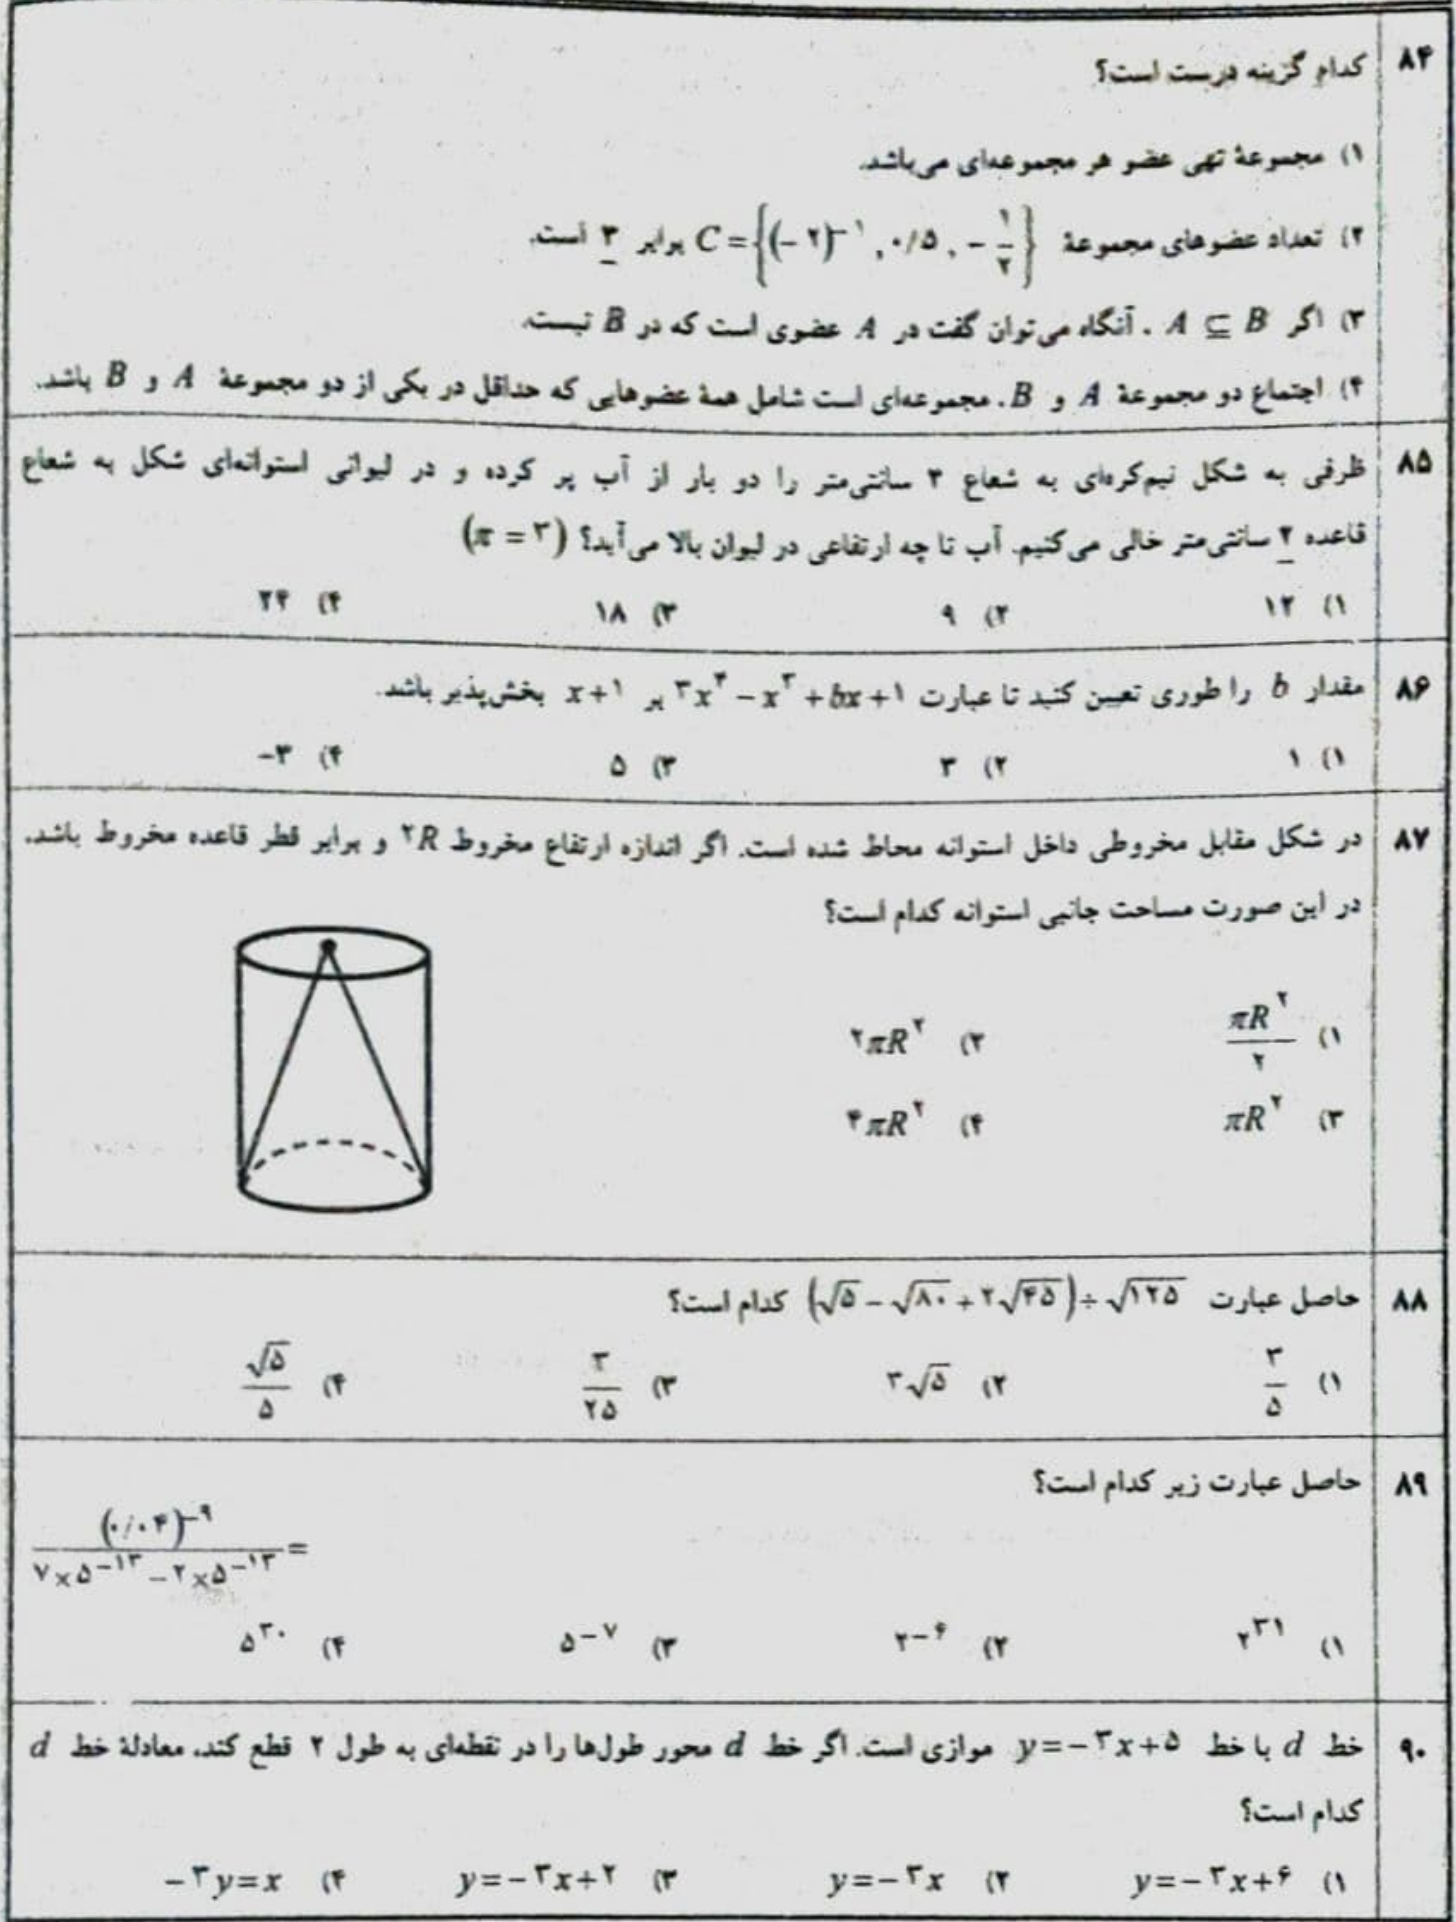 ۸۴ کدام گزینه درست است؟
۱) مجموعهٔ تهی عضو هر مجموعه‌ای می‌باشد.
۲) تعداد عضوهای مجموعهٔ C = {(-۲)^{-۱}, ۰/۵, -۱/۲} برابر ۳ است.
۳) اگر A ⊆ B، آنگاه می‌توان گفت در A عضوی است که در B نیست.
۴) اجتماع دو مجموعهٔ A و B، مجموعه‌ای است شامل همهٔ عضوهایی که حداقل در یکی از دو مجموعهٔ A و B باشد.
۸۵ ظرفی به شکل نیم‌کره‌ای به شعاع ۳ سانتی‌متر را دو بار از آب پر کرده و در لیوانی استوانه‌ای شکل به شعاع
قاعده ۲ سانتی‌متر خالی می‌کنیم. آب تا چه ارتفاعی در لیوان بالا می‌آید؟ (π = ۳)
۱) ۱۲ ۲) ۹ ۳) ۱۸ ۴) ۲۴
۸۶ مقدار b را طوری تعیین کنید تا عبارت ۳x^۴ - x^۳ + bx + ۱ بر x+۱ بخش‌پذیر باشد.
۱) ۱ ۲) ۳ ۳) ۵ ۴) -۳
۸۷ در شکل مقابل مخروطی داخل استوانه محاط شده است. اگر اندازه ارتفاع مخروط ۲R و برابر قطر قاعده مخروط باشد.
در این صورت مساحت جانبی استوانه کدام است؟
۱) πR^۲/۲ ۲) ۲πR^۲
۳) πR^۲ ۴) ۴πR^۲
۸۸ حاصل عبارت (√۵ - √۸۰ + ۲√۴۵) ÷ √۱۲۵ کدام است؟
۱) ۳/۵ ۲) ۳√۵ ۳) ۳/۲۵ ۴) √۵/۵
۸۹ حاصل عبارت زیر کدام است؟
(۰/۰۴)^{-۹} / (۷×۵^{-۱۳} - ۲×۵^{-۱۳}) =
۱) ۲^{۳۱} ۲) ۲^{-۶} ۳) ۵^{-۷} ۴) ۵^{۳۰}
۹۰ خط d با خط y=-۳x+۵ موازی است. اگر خط d محور طول‌ها را در نقطه‌ای به طول ۲ قطع کند، معادلهٔ خط d
کدام است؟
۱) y=-۳x+۶ ۲) y=-۳x ۳) y=-۳x+۲ ۴) -۳y=x